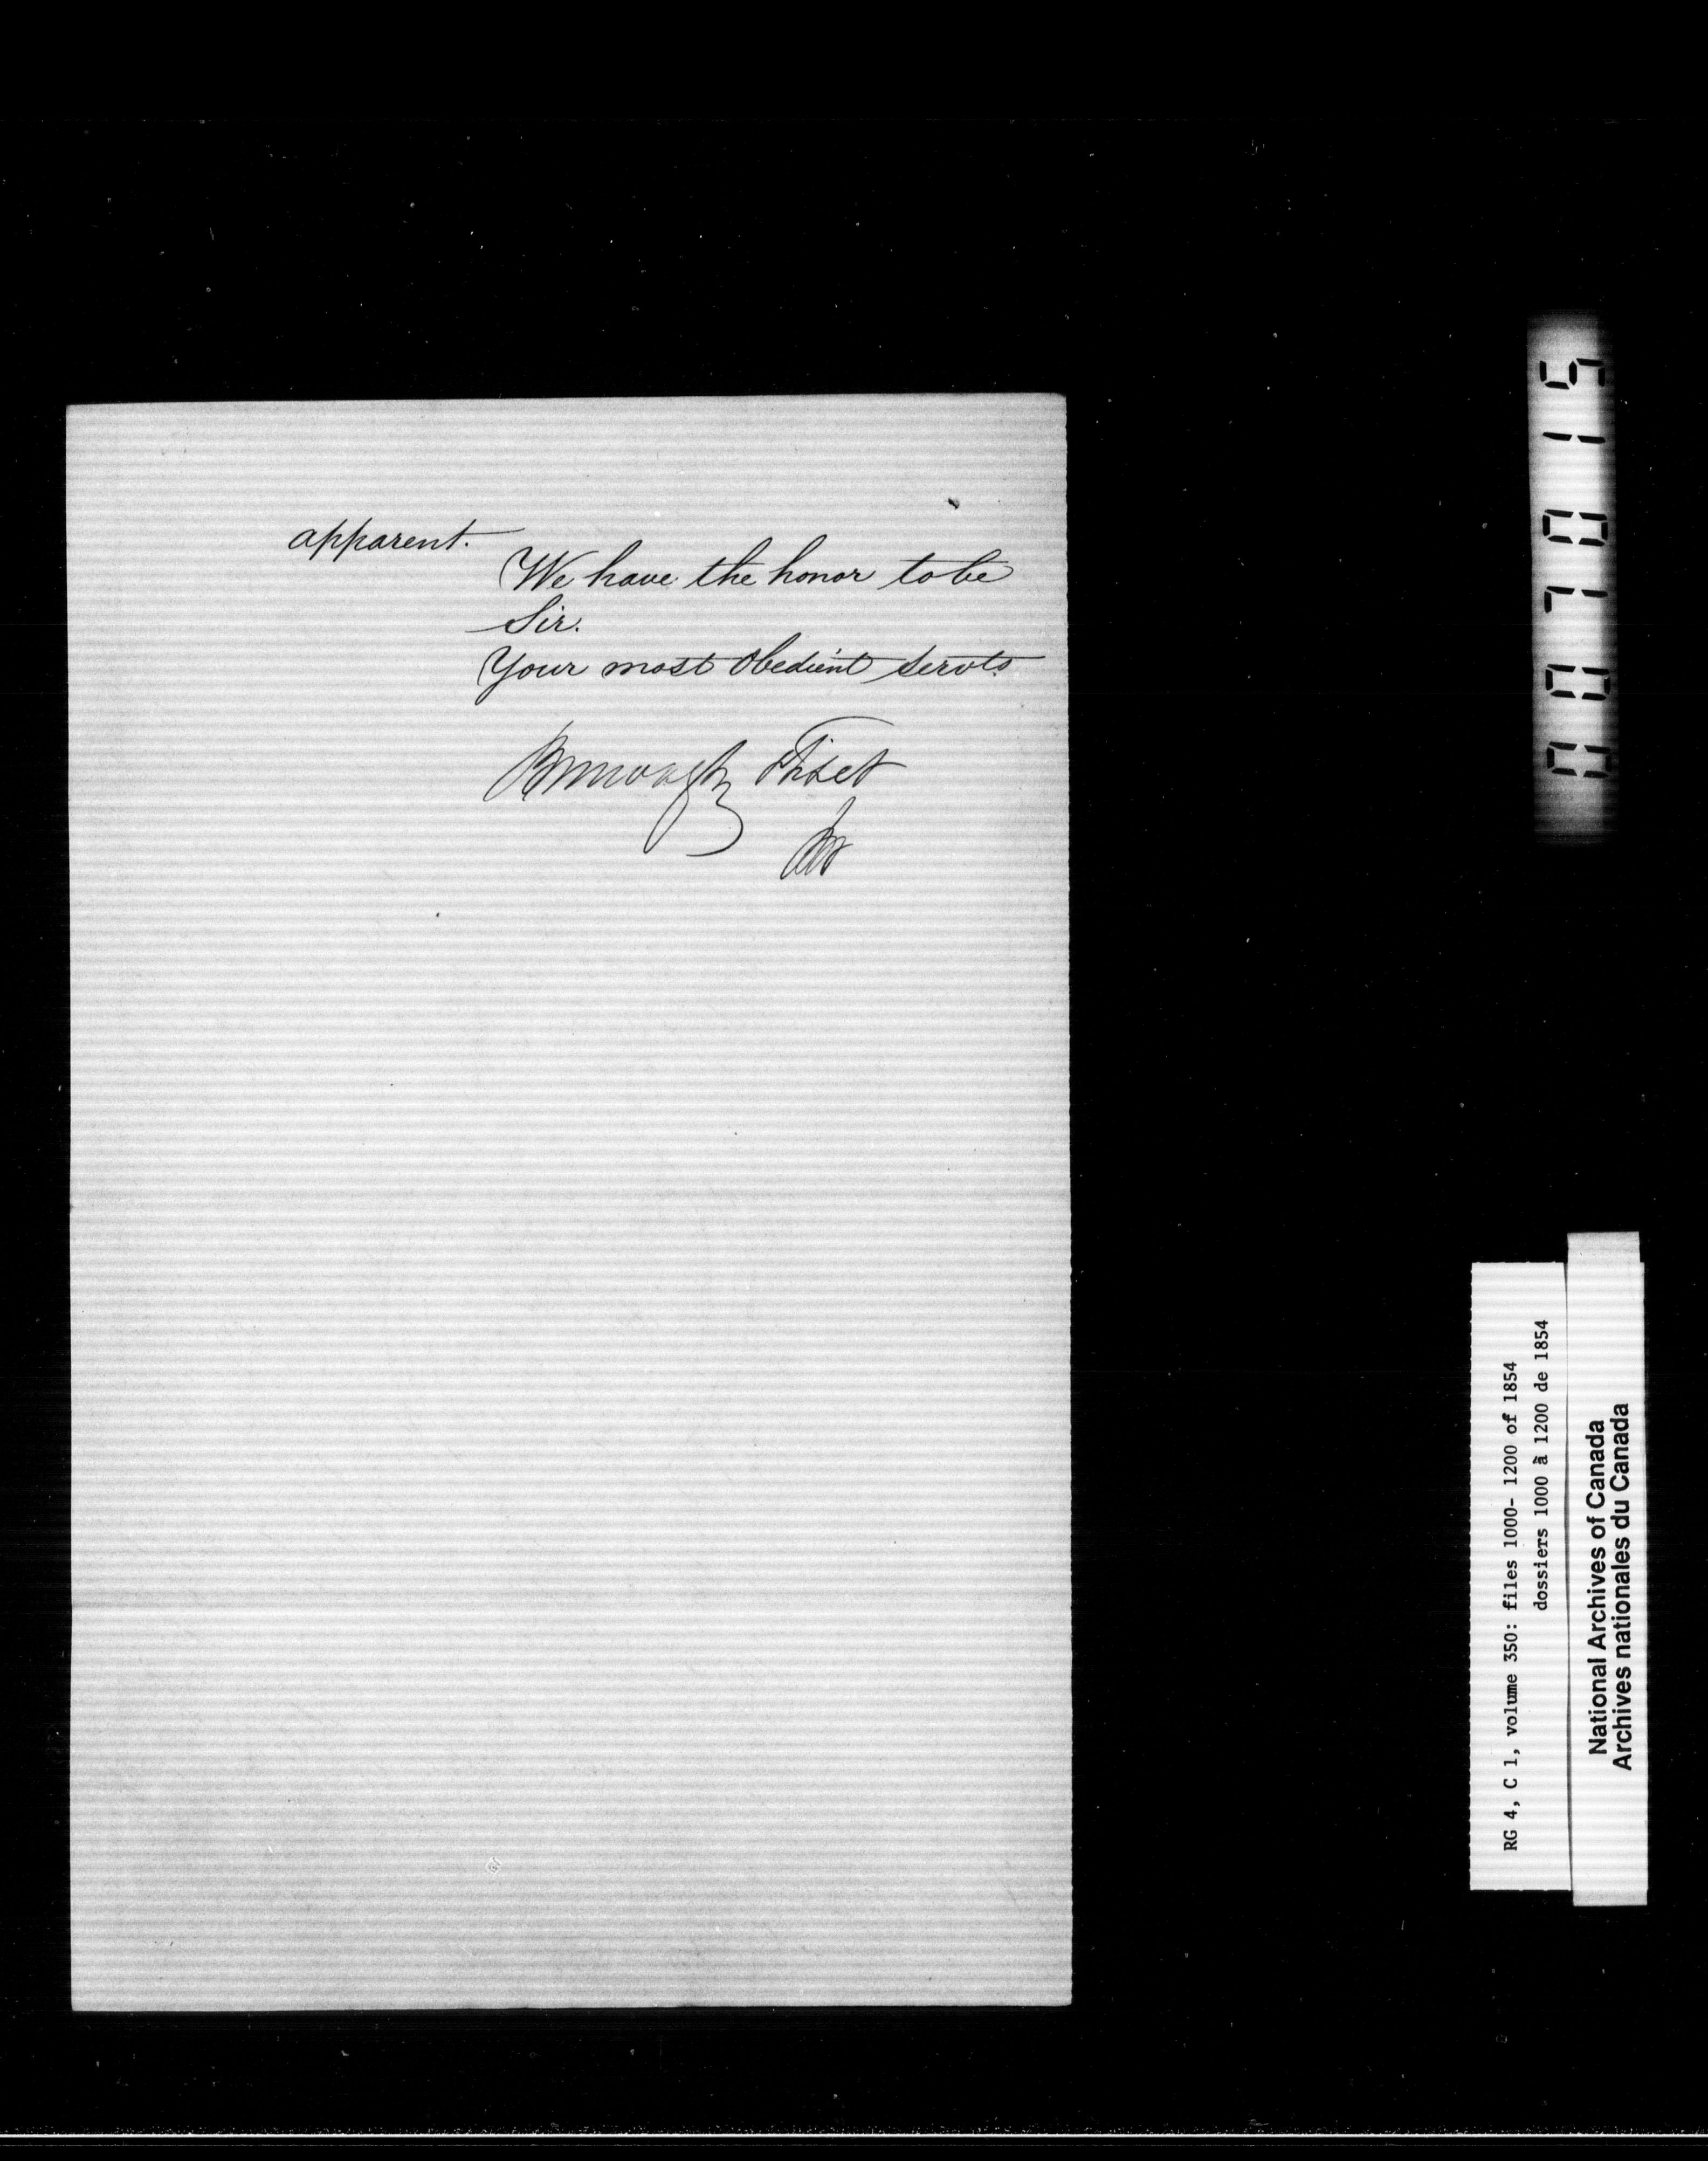 apparent.
We have the honor to be
Sir.
Your most Obedient servts.
Burroughs Fiset
007015
RG 4, C 1, volume 350: files 1000- 1200 of 1854
dossiers 1000 à 1200 de 1854
National Archives of Canada
Archives nationales du Canada